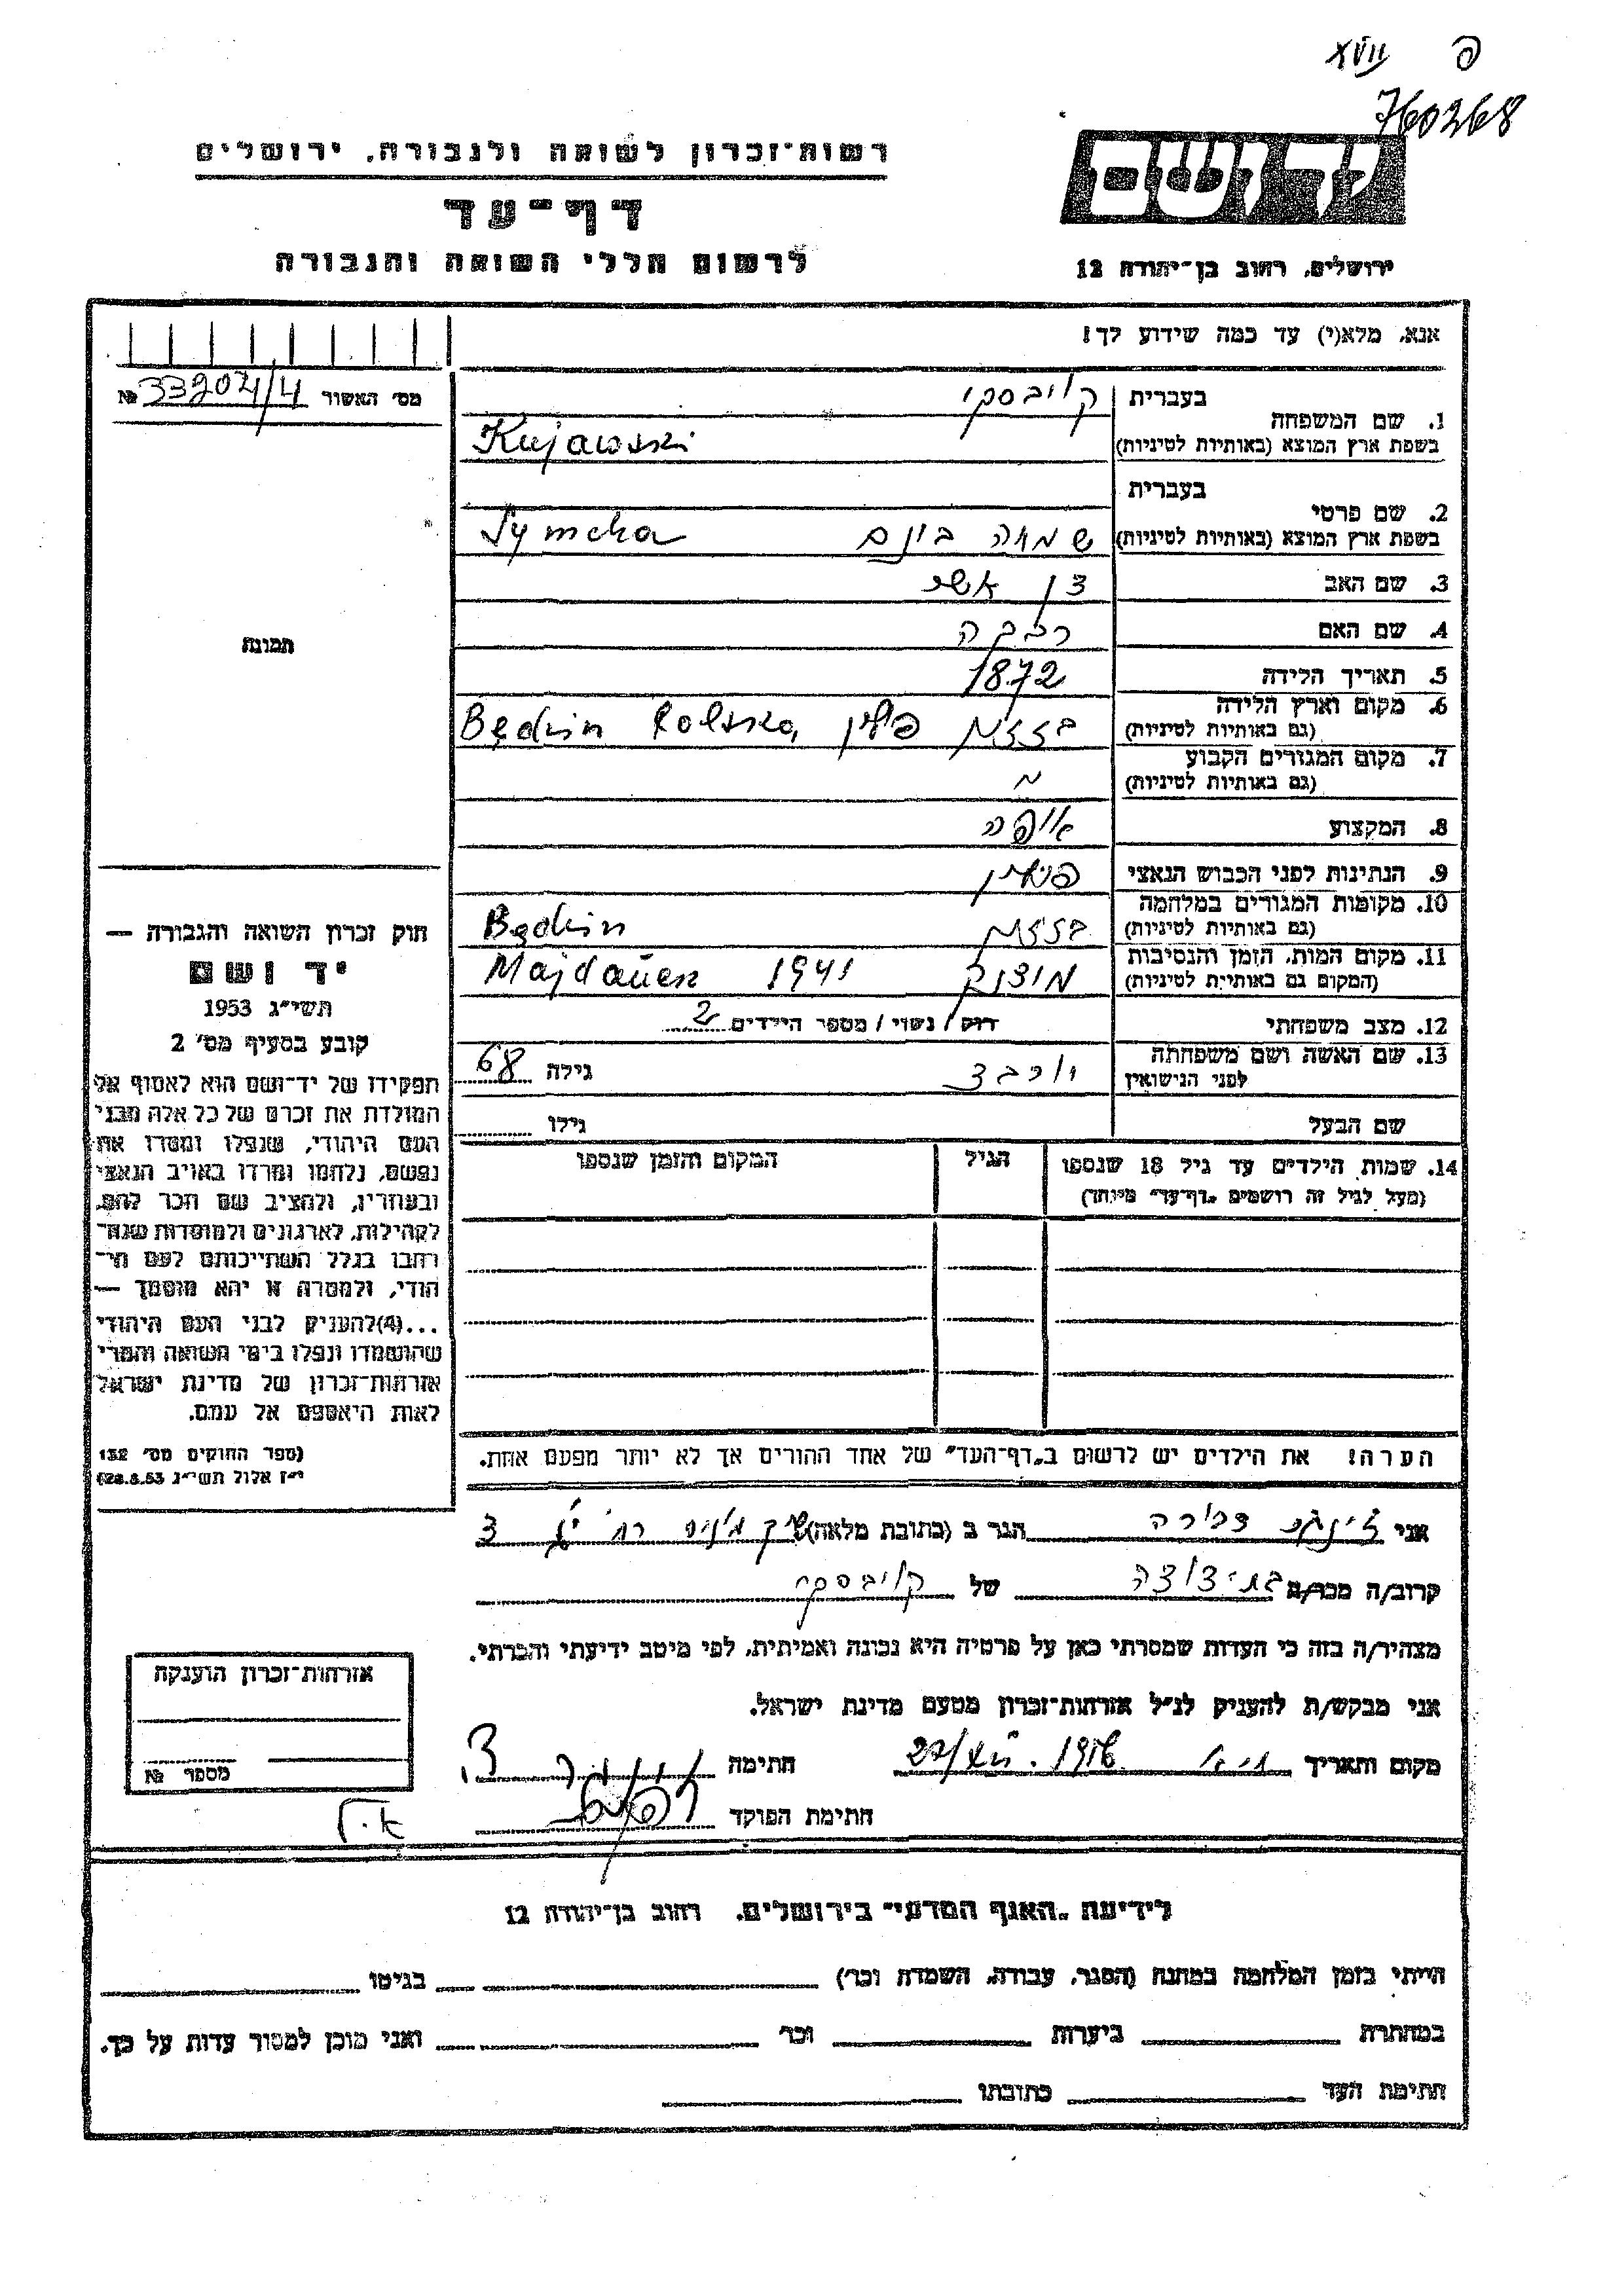 XVII פ
760268
רשות־זכרון לשואה ולגבורה, ירושלים
דף־עד
לרשום חללי השואה והגבורה
יד ושם
ירושלים, רחוב בן־יהודה 12
אנא, מלא(י) עד כמה שידוע לך!
מס׳ האשור 33204/4 №
1. שם המשפחה בעברית קויבסקי
בשפת ארץ המוצא (באותיות לטיניות) Kujawski
2. שם פרטי בעברית
בשפת ארץ המוצא (באותיות לטיניות) שמחה בונם Symcha
3. שם האב
4. שם האם רבקה
5. תאריך הלידה 1872
6. מקום וארץ הלידה
(גם באותיות לטיניות) פולין Będzin Polska
7. מקום המגורים הקבוע
(גם באותיות לטיניות)
8. המקצוע אופה
9. הנתינות לפני הכבוש הנאצי פולין
10. מקומות המגורים במלחמה
(גם באותיות לטיניות) Będzin
11. מקום המות, הזמן והנסיבות
(המקום גם באותיות לטיניות) 1941 Majdanek
12. מצב משפחתי רוק / נשוי / מספר הילדים 2
13. שם האשה ושם משפחתה
לפני הנישואין גילה 68
שם הבעל גילו
14. שמות הילדים עד גיל 18 שנספו הגיל המקום והזמן שנספו
(מעל לגיל זה רושמים „דף־עד״ מיוחד)
הערה! את הילדים יש לרשום ב„דף־העד״ של אחד ההורים אך לא יותר מפעם אחת.
תמונה
חוק זכרון השואה והגבורה —
יד ושם
תשי״ג 1953
קובע בסעיף מס׳ 2
תפקידו של יד־ושם הוא לאסוף אל
המולדת את זכרם של כל אלה מבני
העם היהודי, שנפלו ומסרו את
נפשם, נלחמו ומרדו באויב הנאצי
ובעוזריו, ולהציב שם וזכר להם,
לקהילות, לארגונים ולמוסדות שנח־
רבו בגלל השתייכותם לעם הי־
הודי, ולמטרה זו יהא מוסמך —
...(4) להעניק לבני העם היהודי
שהושמדו ונפלו בימי השואה והמרי
אזרחות־זכרון של מדינת ישראל
לאות היאספם אל עמם.
(ספר החוקים מס׳ 132
י״ז אלול תשי״ג 28.8.53)
אני הגר ב (כתובת מלאה)
קרוב/ה מכר/ה של קויבסקי
מצהיר/ה בזה כי העדות שמסרתי כאן על פרטיה היא נכונה ואמיתית, לפי מיטב ידיעתי והכרתי.
אני מבקש/ת להעניק לנ״ל אזרחות־זכרון מטעם מדינת ישראל.
מקום ותאריך חתימה
חתימת הפוקד
אזרחות־זכרון הוענקה
מספר №
לידיעת „האגף המדעי״ בירושלים, רחוב בן־יהודה 12
הייתי בזמן המלחמה במחנה (הסגר, עבודה, השמדה וכו׳) בגיטו
במחתרת ביערות וכו׳ ואני מוכן למסור עדות על כך.
חתימת העד כתובתו